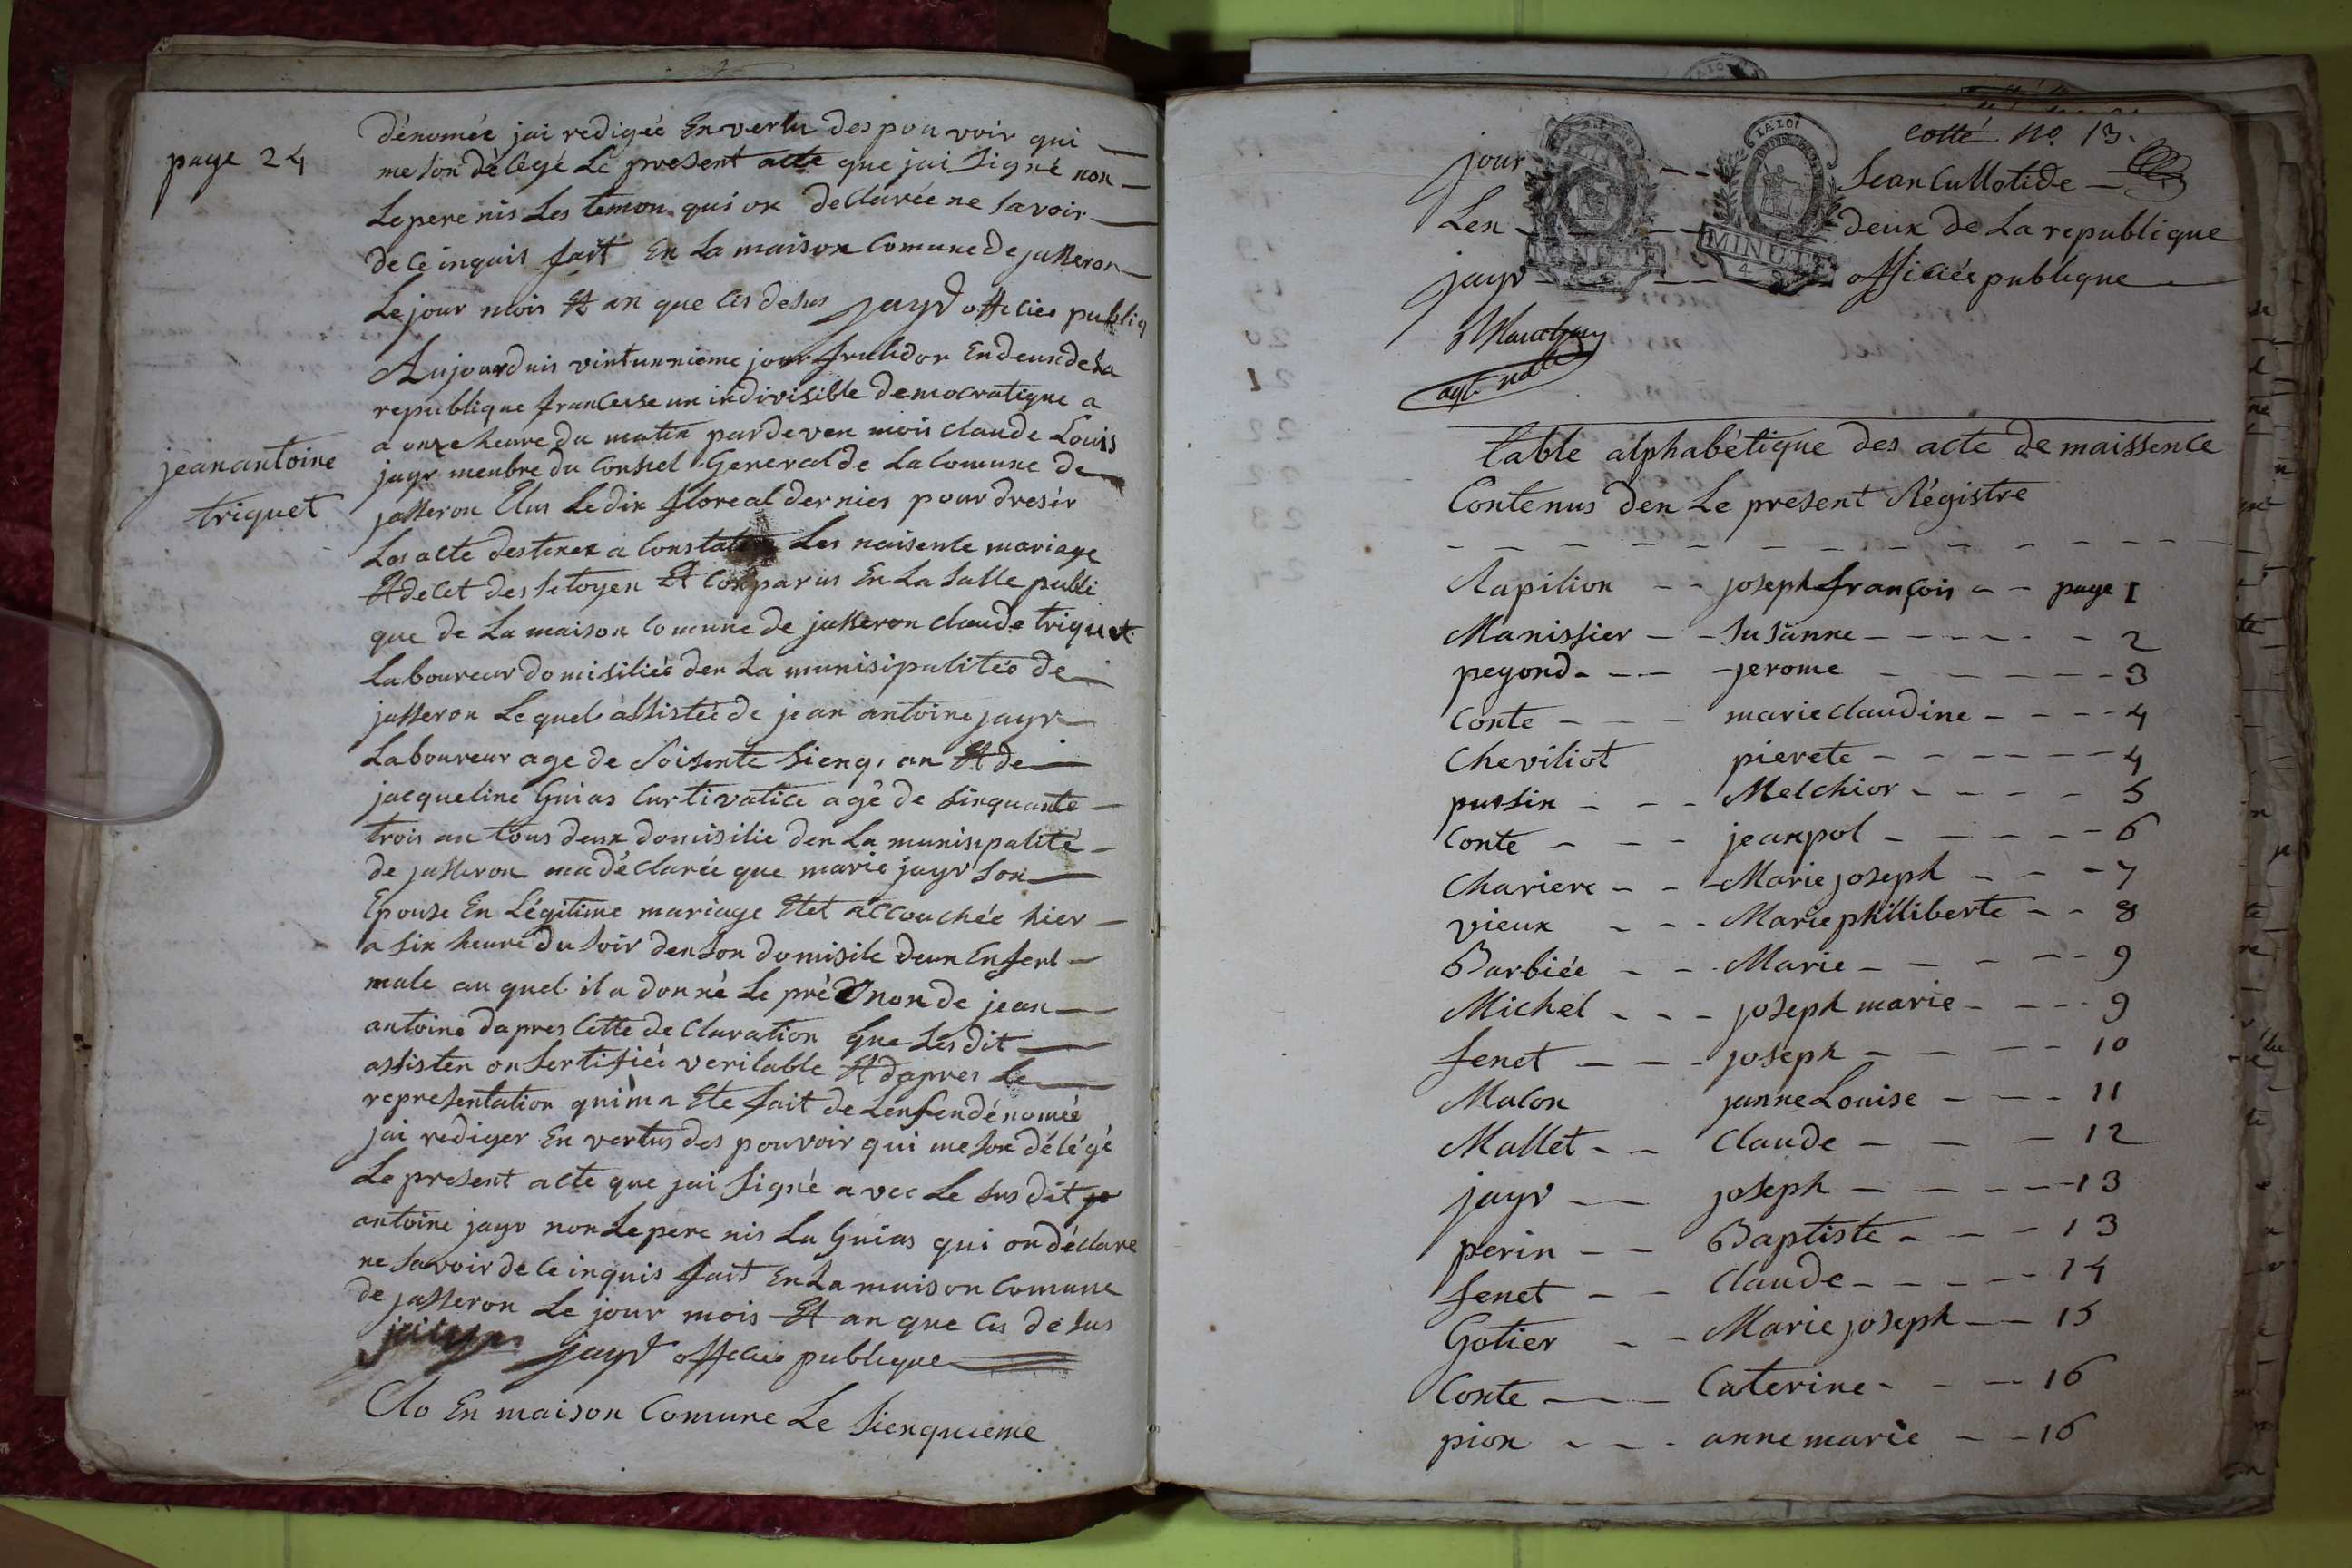 page 24
dénomée jai redigée En vertu des pou voir qui
me son délegé Le present acte que jai signé non
Le pere nis Les temon qui on declarée ne savoir
de ce inquis fait En La maison Comune de jasseron
Le jour mois Et an que cis desus jayr officiée publiq
Aujourduis vintunnieme jour fructidor En deux de La
republique francesse un indivisible democratique a
a onze heure du matin par deven mois claude Louis
jean antoine
triquet
jayr menbre du Consiel General de La Comune de
jasseron Elus Le dix floreal dernier pour dresér
Les acte destinez a Constater Les naisence mariage
Et decet des sitoyen Et Conparus En La salle publi
que de La maison Comune de jasseron claude triquet
Laboureur domisiliée den La munisipulitée de
jasseron Lequel assistée de jean antoine jayr
Laboureur age de soisente sienq an Et de
jacqueline Guias Curtivatice agé de sinquante
trois an tous deux domisilie den La munisipalité
de jasseron ma déclarée que marie jayr son
Epouse En Légitime mariage Etet accouchée hier
a six heure du soir den son domisile deun Enfent
male au quel il a donné Le pré non de jean
antoine dapres Cette declaration que Lesdit
assisten on sertifiée veritable Et dapres Le
representation qui ma Ete fait de Lenfen dénomée
jai rediger En vertus des pouvoir qui me son délégé
Le present acte que jai signé avec Le susdit je
antoine jayr non Le pere nis La Guias qui on déclare
ne savoir de ce inquis fait En La maison Comune
de jasseron Le jour mois Et an que cis desus
jayr officiée publique
Clo En maison Comune Le sienquieme
cotté No. 13.
jour sean Cullotide
Len deux de La republique
jayr officiée publique
LA LOI
MINUTE
MINUTE
4 S
agt. natl
table alphabétique des acte de naissence
Contenus den Le present Régistre
Rapilion joseph françois page 1
Manissier susanne 2
pegond jerome 3
Conte marie claudine 4
Cheviliot pierete 4
pussin Melchior 5
Conte jean pol 6
Chariere Marie joseph 7
vieux Marie philiberte 8
Barbiée Marie 9
Michel joseph marie 9
fenet joseph 10
Macon janne Louise 11
Mallet Claude 12
jayr joseph 13
perin Baptiste 13
fenet Claude 14
Gotier Marie joseph 15
Conte Caterine 16
pion anne marie 16